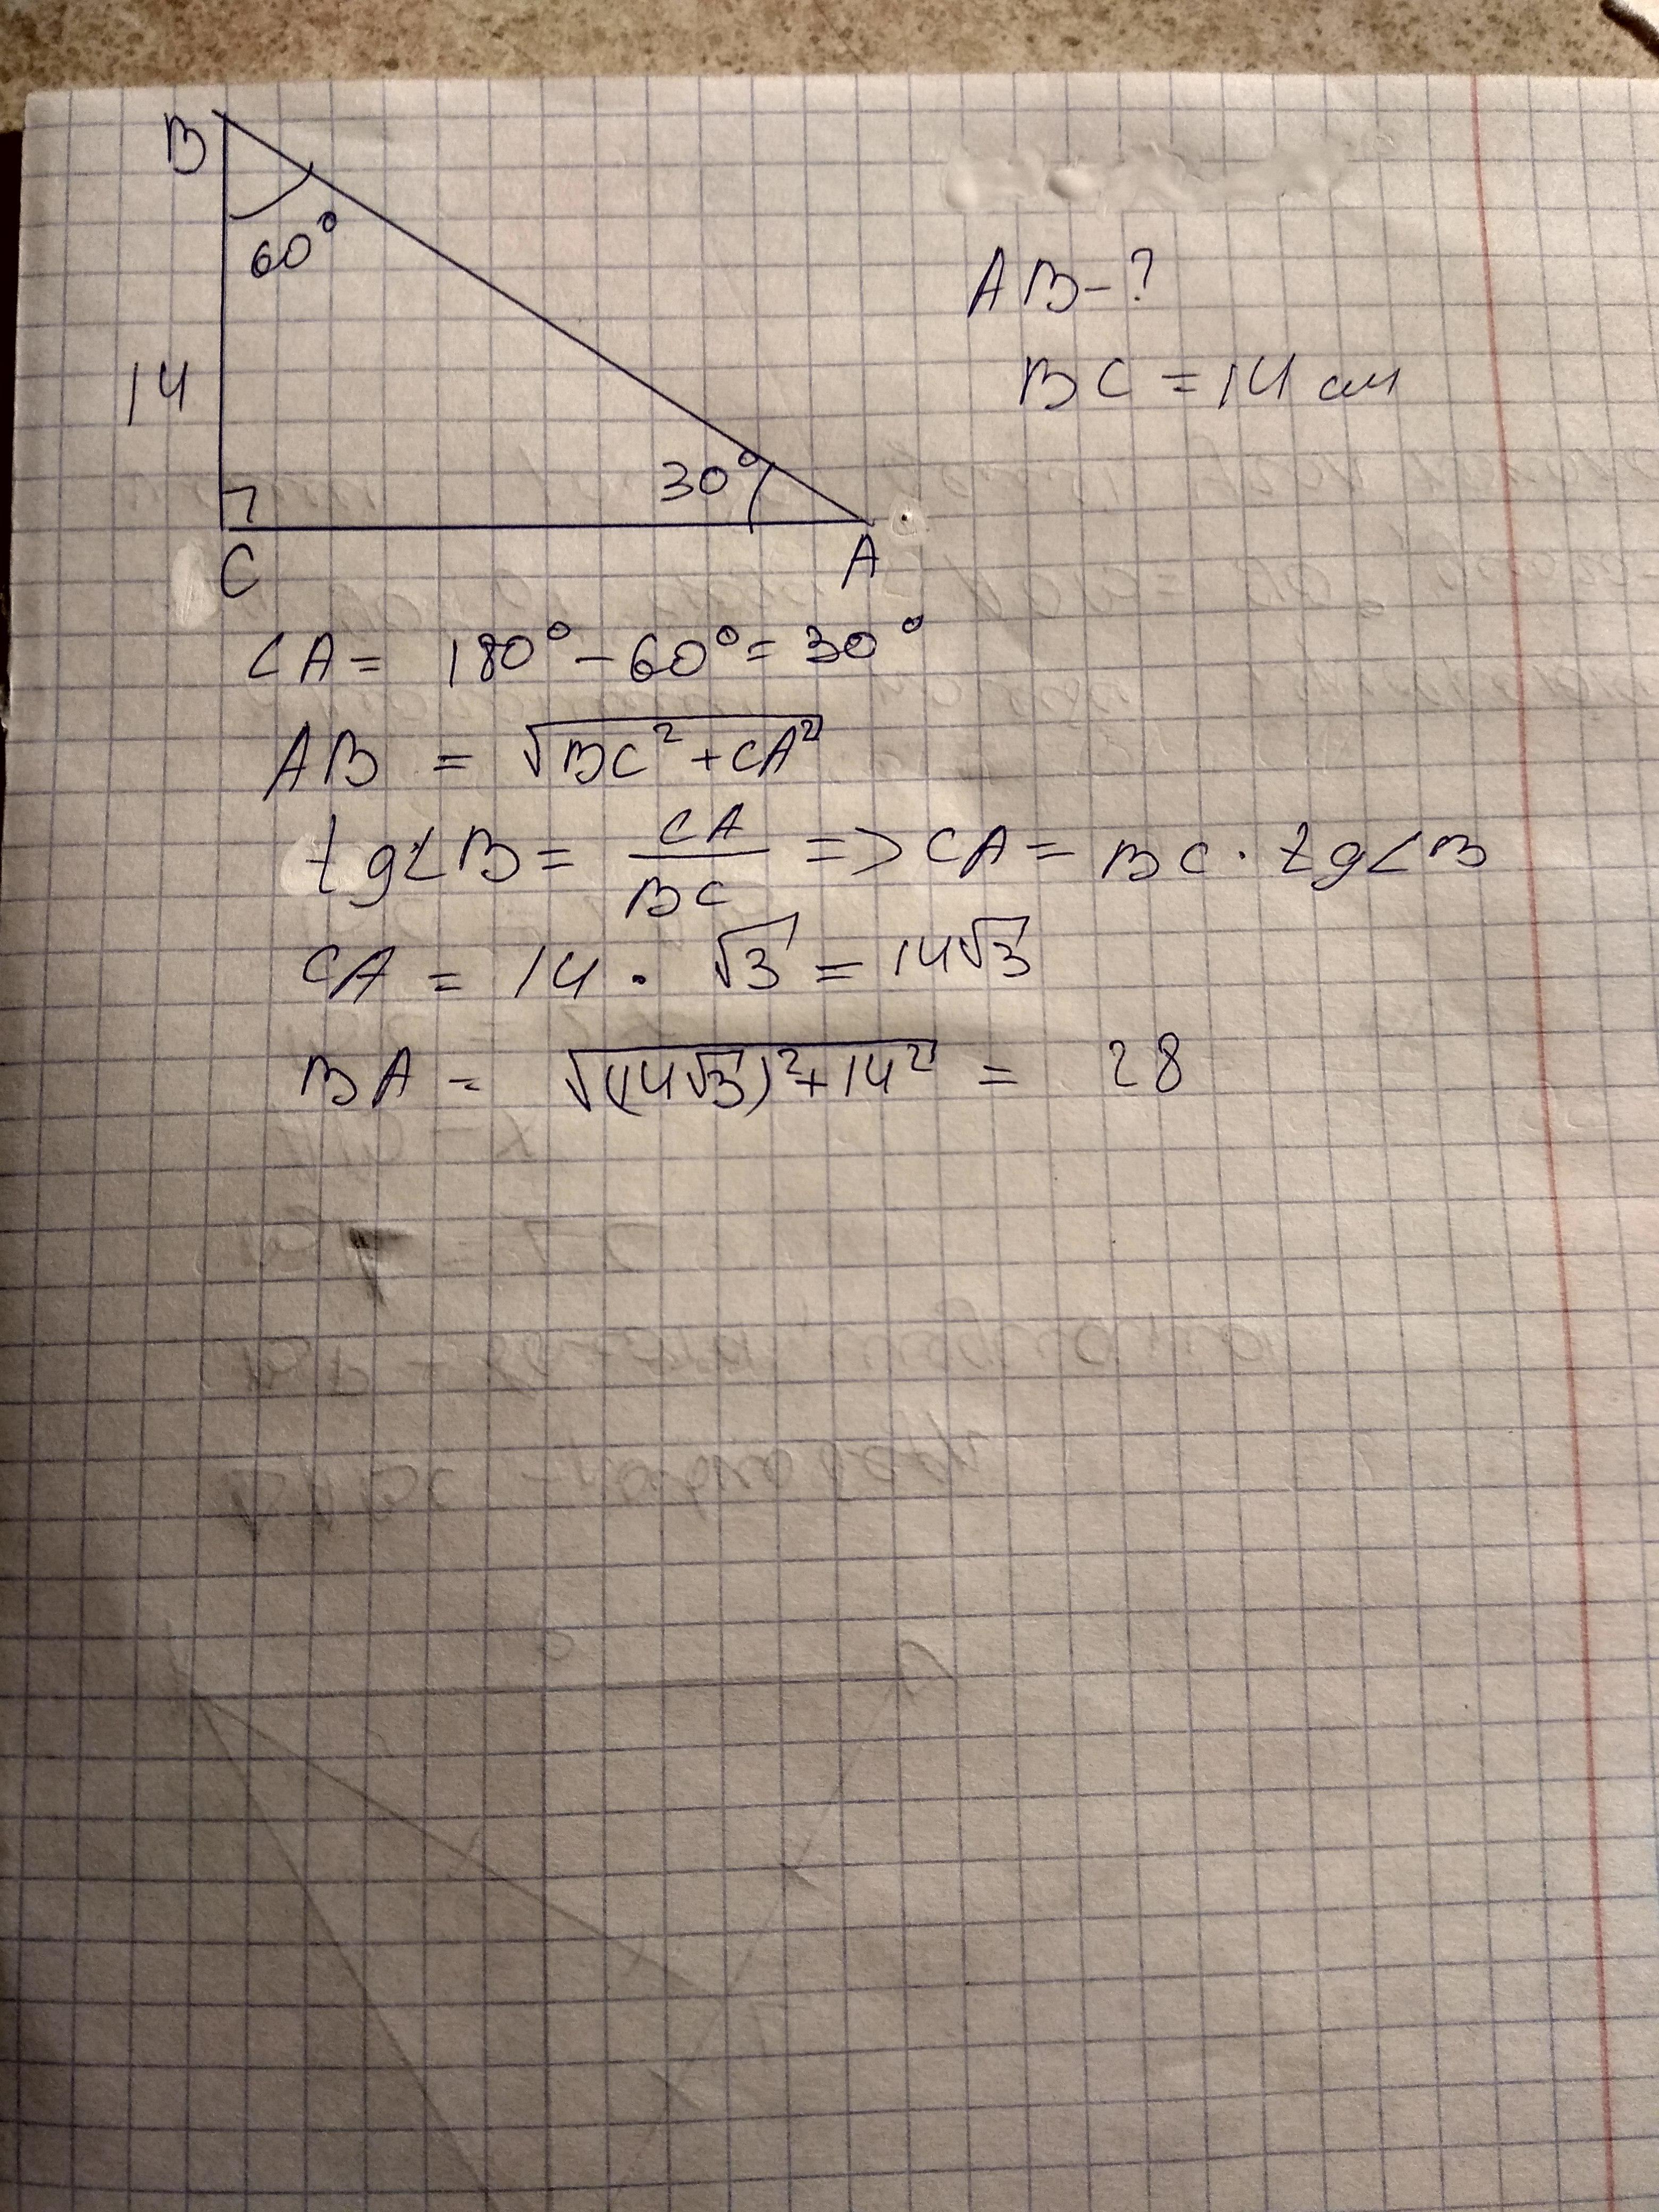 B
60°
AB-?
14
BC = 14 см
30°
C
A
∠A = 180° - 60° = 30°
AB = √BC² + CA²
tg∠B = CA/BC => CA = BC · tg∠B
CA = 14 · √3 = 14√3
BA = √(14√3)² + 14² = 28